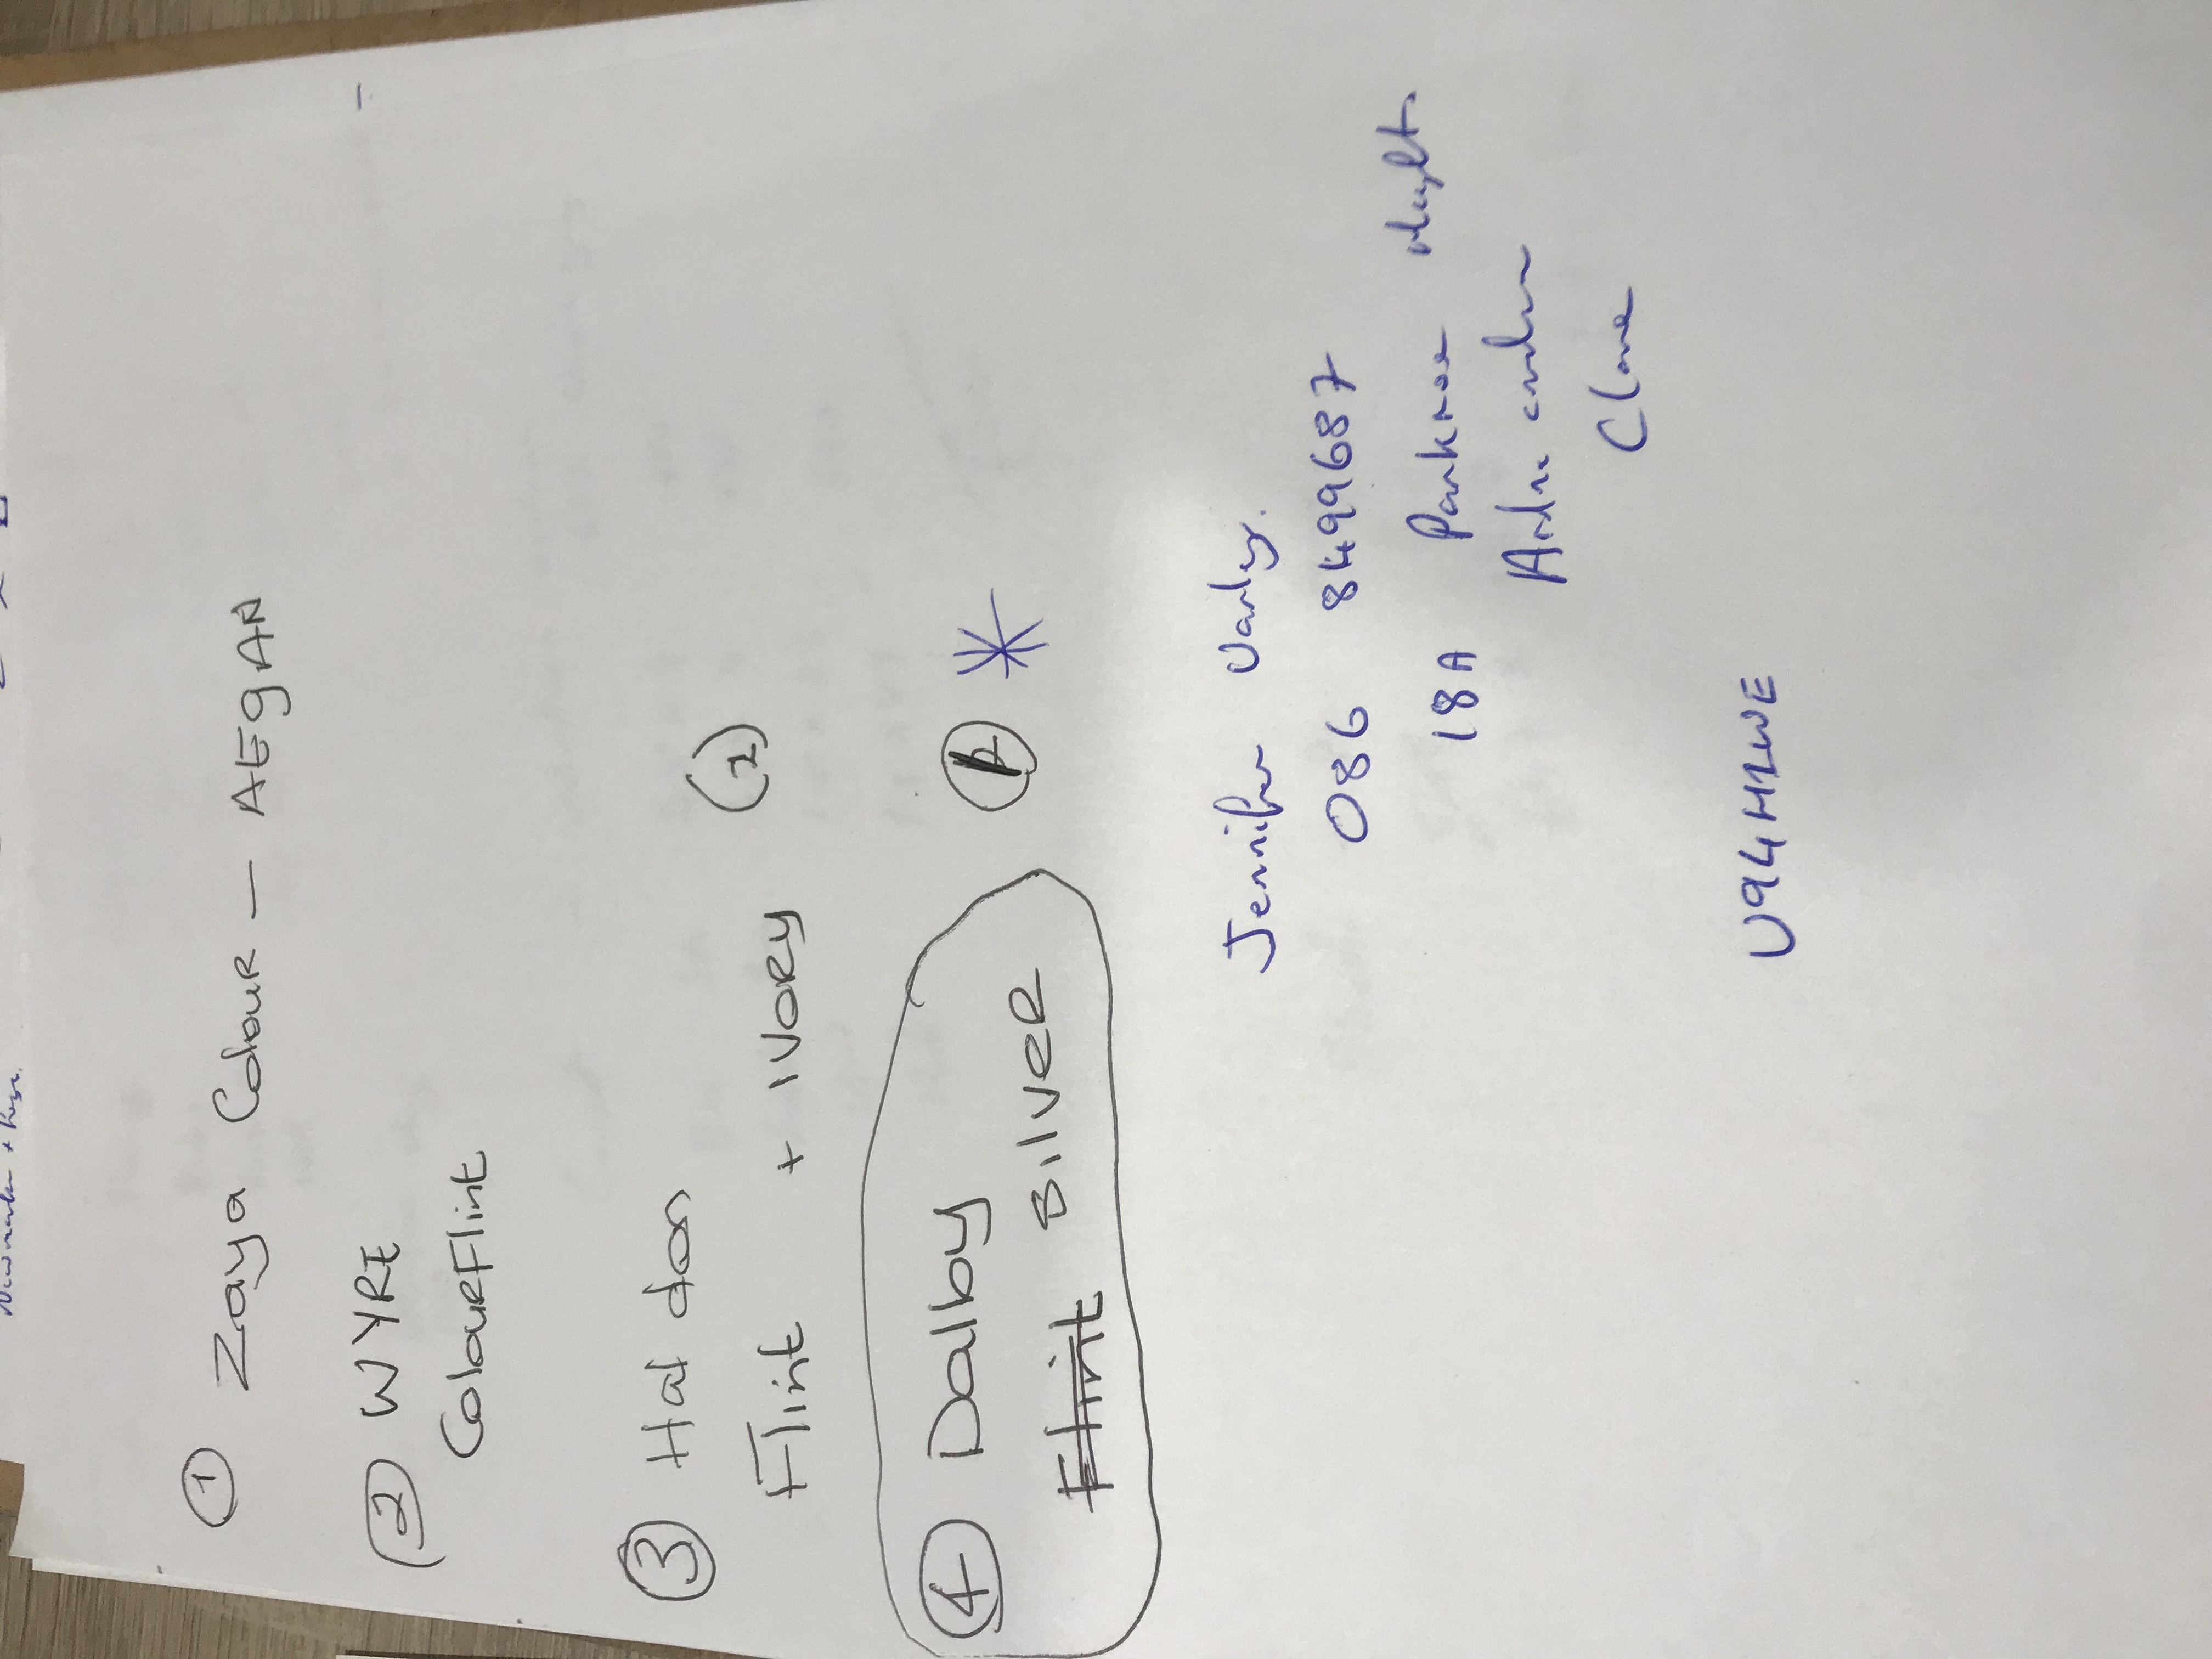 ① Zaya Colour — AEGAN
② WYRE
ColourFlint
③ Haldon
Flint + IVORY (2)
④ Dalby
Flint SilveR *
Jennifer Varley.
086 8499687
18A Parknoe
Clare
V94H2WE